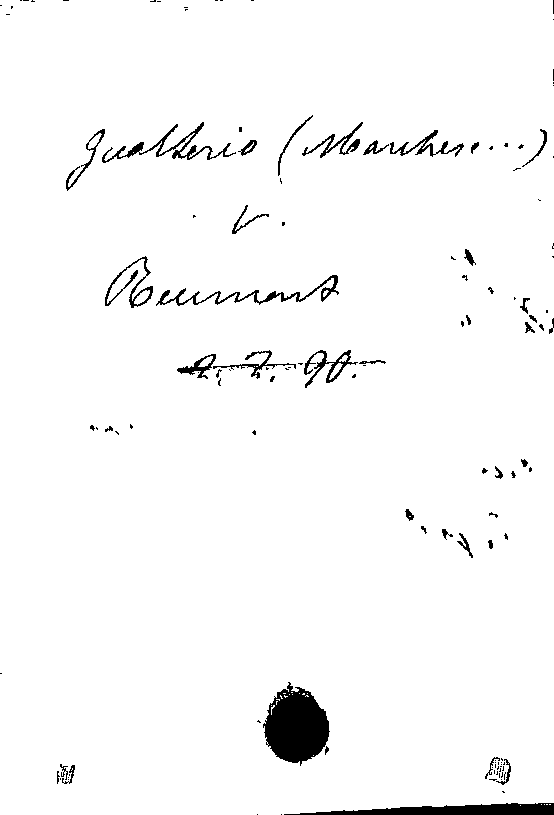 Gualterio (Marchese...)
v.
Reumont
2. 7. 90.